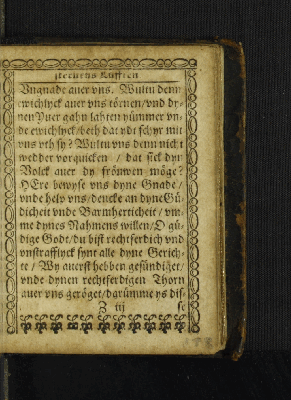 Vngnade auer vns. Wultu denn
ewichlyck auer vns törnen/vnd dy-
nen Yuer gahn lahten nümmer vn-
de ewichlyck/beth dat ydt schyr mit
vns vth sy? Wultu vns denn nicht
wedder vorquicken / dat sick dyn
Volck auer dy fröuwen möge?
HEre bewyse vns dyne Gnade/
vnde help vns/dencke an dyne Gü-
dicheit vnde Barmherticheit / vm-
me dynes Nahmens willen/O gü-
dige Godt/du bist rechtferdich vnd
vnstrafflyck synt alle dyne Gerich-
te / Wy auerst hebben gesündiget/
vnde dynen rechtferdigen Thorn
auer vns geröget/dgrümme ys dis-
Z iij
se